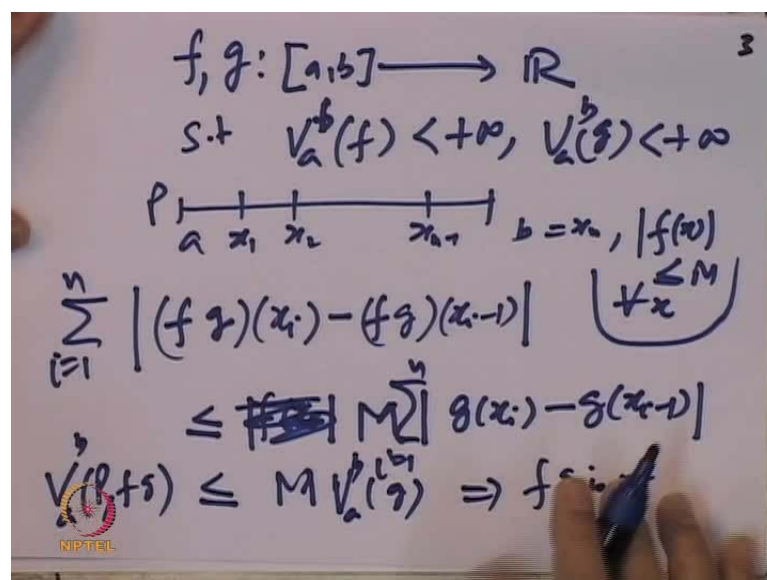 3
f, g : [a,b] ⟶ ℝ
s.t V_a^b(f) < +∞, V_a^b(g) < +∞
P a x_1 x_2 x_{n-1} b = x_n, |f(x)| ≤ M ∀ x
∑_{i=1}^n |(f g)(x_i) − (f g)(x_{i-1})|
≤ M ∑_{i=1}^n | g(x_i) − g(x_{i-1})|
V_a^b(P, fg) ≤ M V_a^b(g) ⇒ f
NPTEL